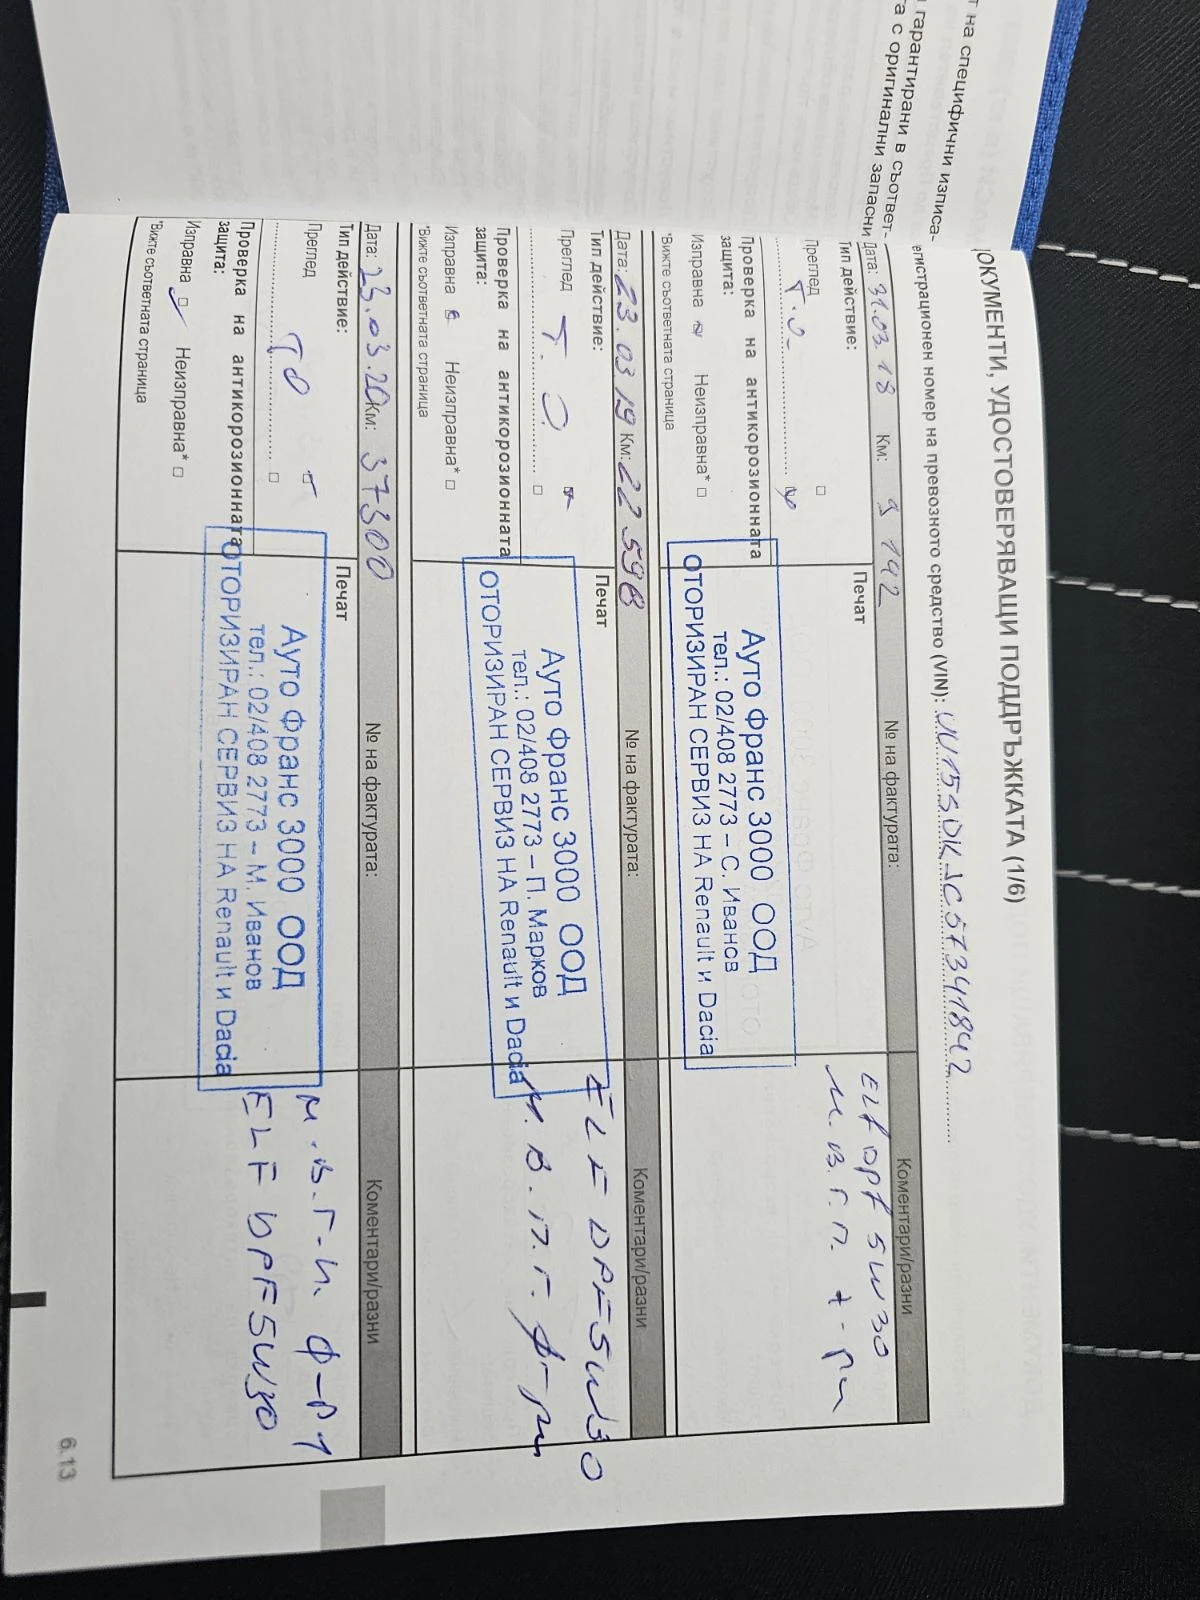 т на специфични изписа-
гарантирани в съответ-
а с оригинални запасни
ДОКУМЕНТИ, УДОСТОВЕРЯВАЩИ ПОДДРЪЖКАТА (1/6)
егистрационен номер на превозното средство (VIN): UU15SDKJC57341842
Дата: 31.03.18 Км: 9 142 № на фактурата: Коментари/разни
Тип действие: Печат
Преглед □
Т.О.
Проверка на антикорозионната
защита:
Изправна Неизправна* □
*Вижте съответната страница
Ауто Франс 3000 ООД
тел.: 02/408 2773 – С. Иванов
ОТОРИЗИРАН СЕРВИЗ НА Renault и Dacia
ELF DPF 5W30
м.в.г.п. +
Дата: 23.03 19 Км: 22 598 № на фактурата: Коментари/разни
Тип действие: Печат
Преглед
Т.О. □
Проверка на антикорозионната
защита:
Изправна Неизправна* □
*Вижте съответната страница
Ауто Франс 3000 ООД
тел.: 02/408 2773 – П. Марков
ОТОРИЗИРАН СЕРВИЗ НА Renault и Dacia
ELF DPF 5W30
м.в.п.г. ф-ри
Дата: 23.03.20 Км: 37300 № на фактурата: Коментари/разни
Тип действие: Печат
Преглед □
ТО □
Проверка на антикорозионната
защита:
Изправна □ Неизправна* □
*Вижте съответната страница
Ауто Франс 3000 ООД
тел.: 02/408 2773 – М. Иванов
ОТОРИЗИРАН СЕРВИЗ НА Renault и Dacia
ELF DPF 5W30
6.13